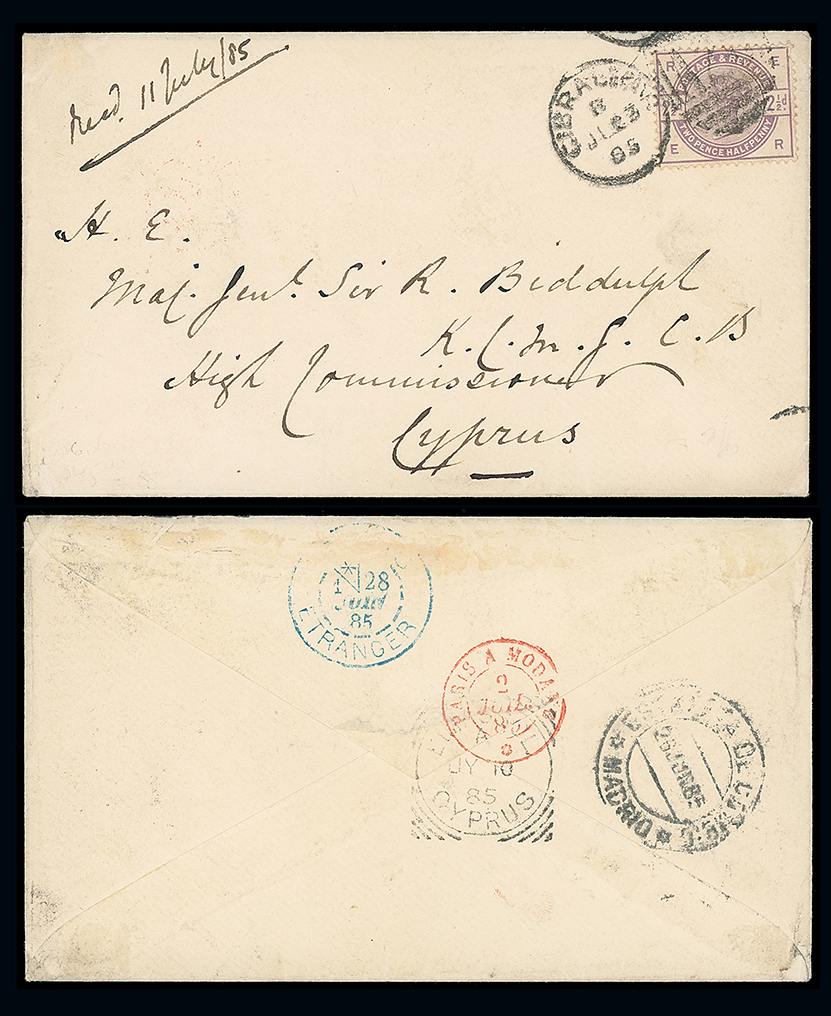 Recd. 11 July/85
GIBRALTAR
B
JU 23
85
R E
POSTAGE & REVENUE
2½d
TWO PENCE HALFPENNY
E R
H. E.
Maj. Genl. Sir R. Biddulph
K.C.M.G. C.B
High Commissioner
Cyprus
1 28
JUIN
85
ETRANGER
PARIS A MODANE
2
JUIL
85
JY 10
85
CYPRUS
MADRID